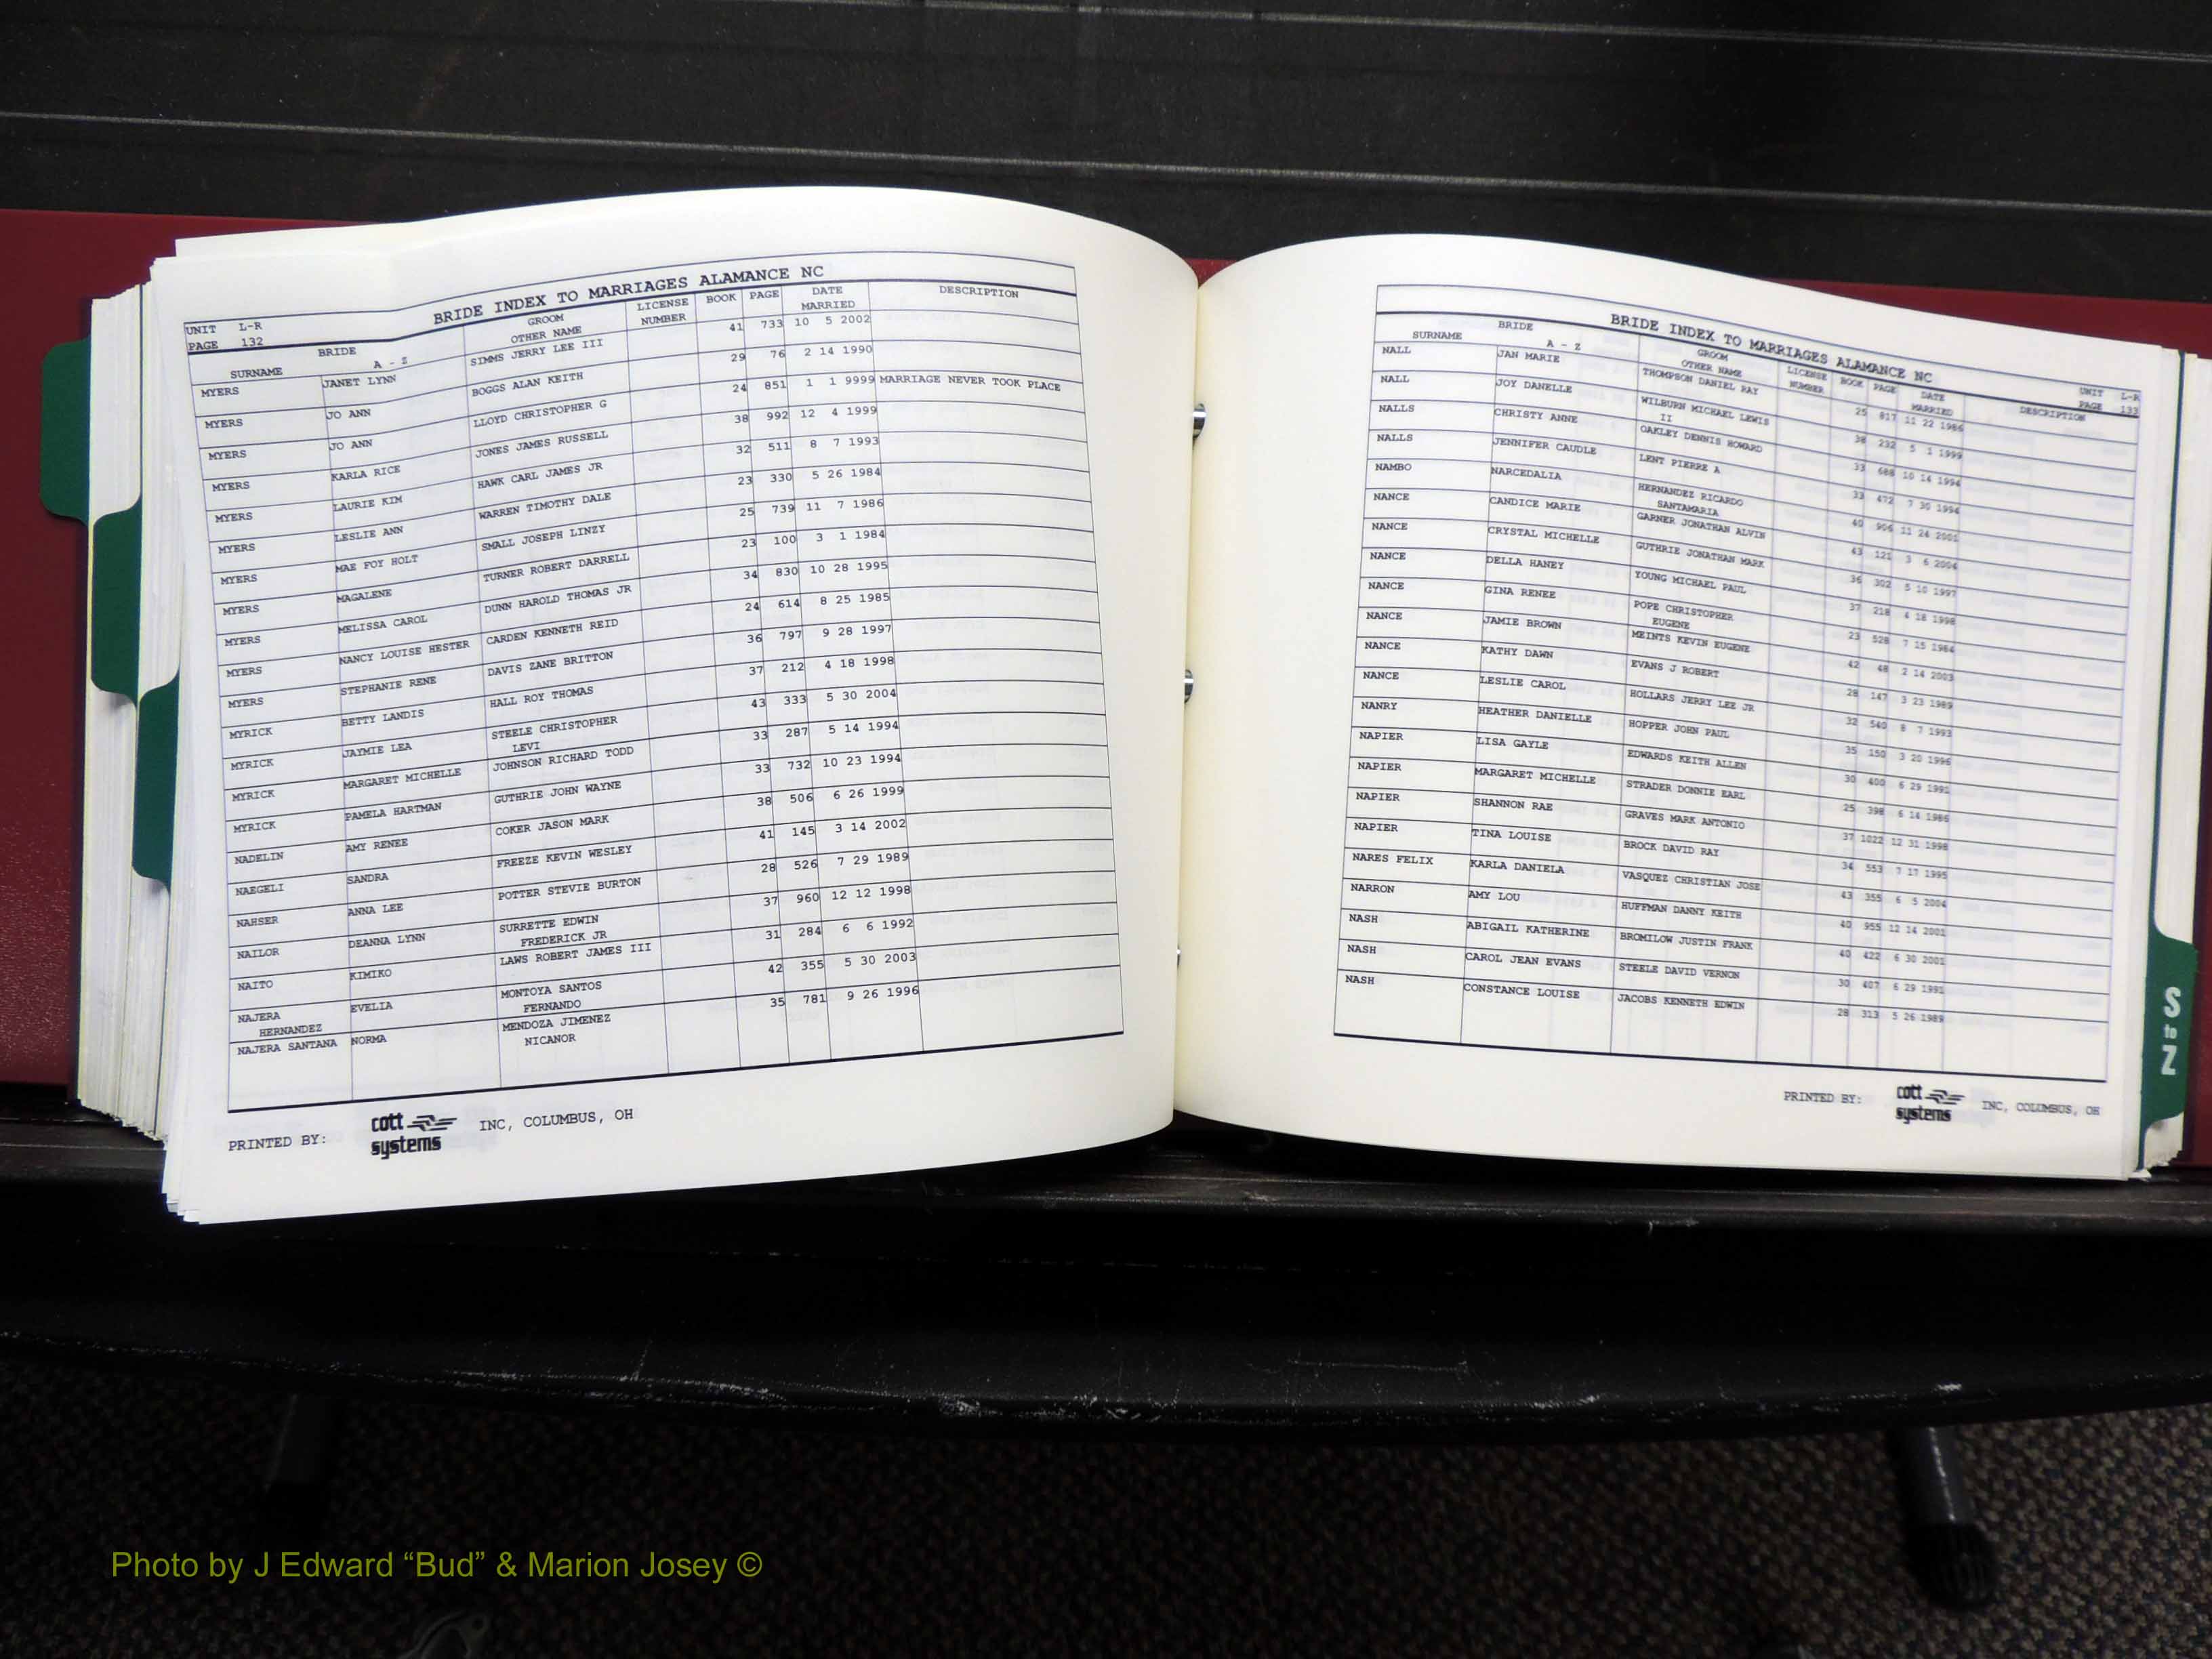 BRIDE INDEX TO MARRIAGES ALAMANCE NC
UNIT L-R
PAGE 132
BRIDE GROOM LICENSE BOOK PAGE DATE DESCRIPTION
SURNAME A - Z OTHER NAME NUMBER MARRIED
MYERS JANET LYNN SIMMS JERRY LEE III 41 733 10 5 2002
MYERS JO ANN BOGGS ALAN KEITH 29 76 2 14 1990
MYERS JO ANN LLOYD CHRISTOPHER G 24 851 1 1 9999 MARRIAGE NEVER TOOK PLACE
MYERS KARLA RICE JONES JAMES RUSSELL 38 992 12 4 1999
MYERS LAURIE KIM HAWK CARL JAMES JR 32 511 8 7 1993
MYERS LESLIE ANN WARREN TIMOTHY DALE 23 330 5 26 1984
MYERS MAE FOY HOLT SMALL JOSEPH LINZY 25 739 11 7 1986
MYERS MAGALENE TURNER ROBERT DARRELL 23 100 3 1 1984
MYERS MELISSA CAROL DUNN HAROLD THOMAS JR 34 830 10 28 1995
MYERS NANCY LOUISE HESTER CARDEN KENNETH REID 24 614 8 25 1985
MYERS STEPHANIE RENE DAVIS ZANE BRITTON 36 797 9 28 1997
MYRICK BETTY LANDIS HALL ROY THOMAS 37 212 4 18 1998
MYRICK JAYMIE LEA STEELE CHRISTOPHER 43 333 5 30 2004
LEVI
MYRICK MARGARET MICHELLE JOHNSON RICHARD TODD 33 287 5 14 1994
MYRICK PAMELA HARTMAN GUTHRIE JOHN WAYNE 33 732 10 23 1994
NADELIN AMY RENEE COKER JASON MARK 38 506 6 26 1999
NAEGELI SANDRA FREEZE KEVIN WESLEY 41 145 3 14 2002
NAHSER ANNA LEE POTTER STEVIE BURTON 28 526 7 29 1989
NAILOR DEANNA LYNN SURRETTE EDWIN 37 960 12 12 1998
FREDERICK JR
NAITO KIMIKO LAWS ROBERT JAMES III 31 284 6 6 1992
NAJERA EVELIA MONTOYA SANTOS 42 355 5 30 2003
HERNANDEZ FERNANDO
NAJERA SANTANA NORMA MENDOZA JIMENEZ 35 781 9 26 1996
NICANOR
PRINTED BY: cott systems INC, COLUMBUS, OH
BRIDE INDEX TO MARRIAGES ALAMANCE NC
UNIT L-R
PAGE 133
BRIDE GROOM LICENSE BOOK PAGE DATE DESCRIPTION
SURNAME A - Z OTHER NAME NUMBER MARRIED
NALL JAN MARIE THOMPSON DANIEL RAY 25 817 11 22 1986
NALL JOY DANELLE WILBURN MICHAEL LEWIS 38 232 5 1 1999
II
NALLS CHRISTY ANNE OAKLEY DENNIS HOWARD 33 688 10 14 1994
NALLS JENNIFER CAUDLE LENT PIERRE A 33 472 7 30 1994
NAMBO NARCEDALIA HERNANDEZ RICARDO 40 906 11 24 2001
SANTAMARIA
NANCE CANDICE MARIE GARNER JONATHAN ALVIN 43 121 3 6 2004
NANCE CRYSTAL MICHELLE GUTHRIE JONATHAN MARK 36 302 5 10 1997
NANCE DELLA HANEY YOUNG MICHAEL PAUL 37 218 4 18 1998
NANCE GINA RENEE POPE CHRISTOPHER 23 528 7 15 1984
EUGENE
NANCE JAMIE BROWN MEINTS KEVIN EUGENE 42 48 2 14 2003
NANCE KATHY DAWN EVANS J ROBERT 28 147 3 23 1989
NANCE LESLIE CAROL HOLLARS JERRY LEE JR 32 540 8 7 1993
NANRY HEATHER DANIELLE HOPPER JOHN PAUL 35 150 3 20 1996
NAPIER LISA GAYLE EDWARDS KEITH ALLEN 30 400 6 29 1991
NAPIER MARGARET MICHELLE STRADER DONNIE EARL 25 398 6 14 1986
NAPIER SHANNON RAE GRAVES MARK ANTONIO 37 1022 12 31 1998
NAPIER TINA LOUISE BROCK DAVID RAY 34 553 7 17 1995
NARES FELIX KARLA DANIELA VASQUEZ CHRISTIAN JOSE 43 355 6 5 2004
NARRON AMY LOU HUFFMAN DANNY KEITH 40 955 12 14 2001
NASH ABIGAIL KATHERINE BROMILOW JUSTIN FRANK 40 422 6 30 2001
NASH CAROL JEAN EVANS STEELE DAVID VERNON 30 407 6 29 1991
NASH CONSTANCE LOUISE JACOBS KENNETH EDWIN 28 313 5 26 1989
PRINTED BY: cott systems INC, COLUMBUS, OH
S
to
Z
Photo by J Edward “Bud” & Marion Josey ©